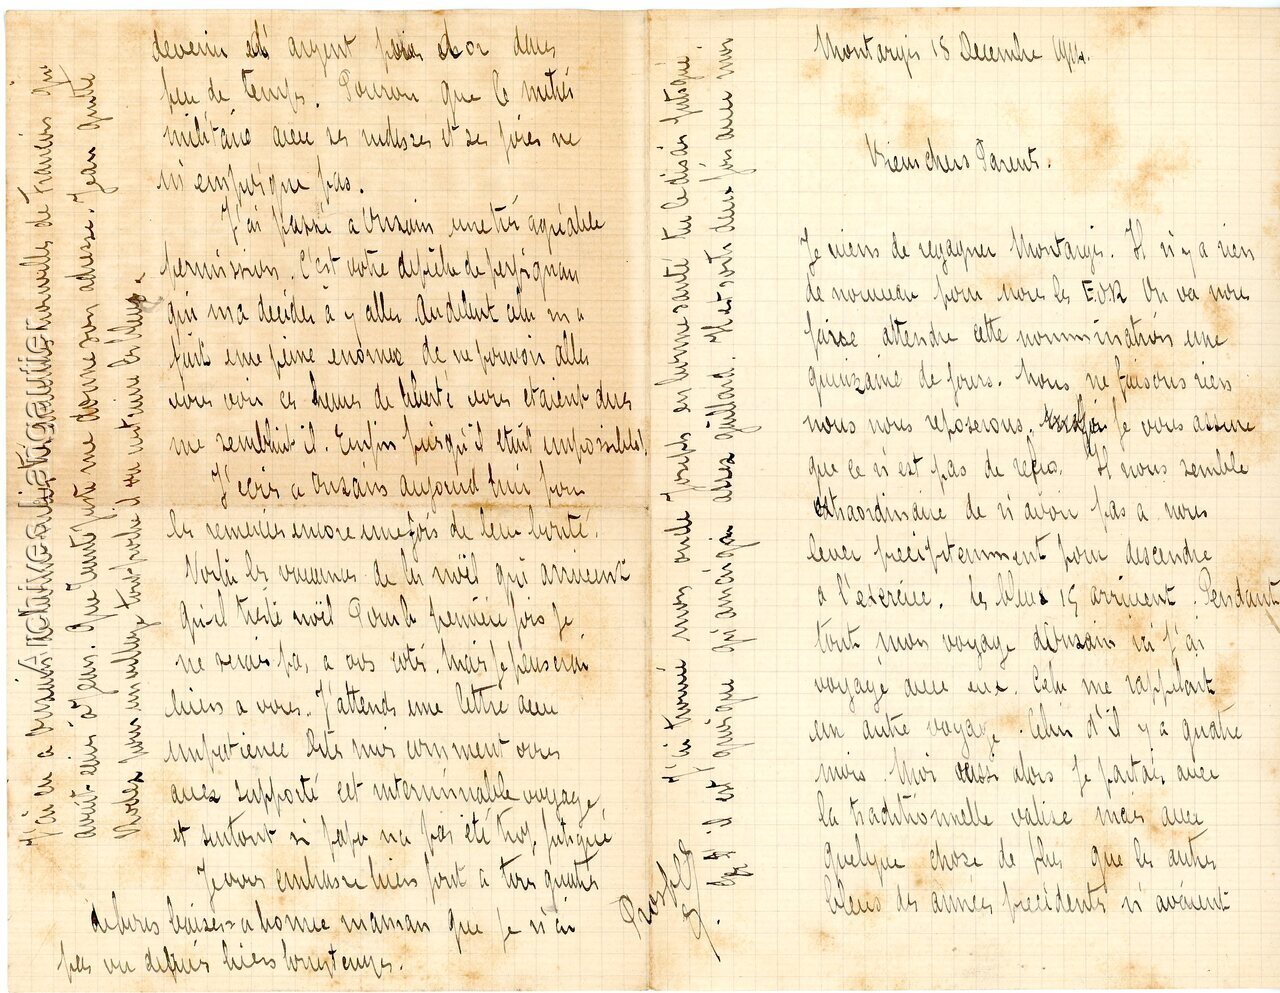 Montargis 18 Decembre 1914.
Bien chers Parents.
Je viens de regagner Montargis. Il n'y a rien
de nouveau pour nous les EOR On va nous
faire attendre cette nommination une
quinzaine de jours. Nous ne faisons rien
nous nous reposerons. Je vous assure
que ce n'est pas de refus. Il nous semble
extraordinaire de n'avoir pas a nous
lever precipitemment pour descendre
a l'exercice. Les bleus 15 arrivent. Pendant
tout mon voyage d'Onzain ici j'ai
voyagé avec eux. Cela me rappelait
un autre voyage. Celui d'il y a quatre
mois. Moi aussi alors je partais avec
la traditionnelle valise mais avec
quelque chose de plus que les autres
bleus des années précédents n'avaient
devenir d'argent puis d'or dans
peu de temps. Pourvu que le métier
militaire avec ses rudesses et ses joies ne
m'empoigne pas.
J'ai passé a Onzain une trés agréable
permission. C'est votre dépêche de perpignan
qui m'a décidé à y aller. Au début cela m'a
fait une peine enorme de ne pouvoir aller
vous voir ces heures de liberté vous etaient dues
me semblait il. Enfin puisqu'il etait impossible!
J'écris a Onzain aujourd'hui pour
les remercier encore une fois de leur bonté.
Voilà les vacances de la noël qui arrivent
qu'il triste noël Pour la première fois je
ne serai pas a vos cotés. Mais je penserai
bien a vous. J'attends une lettre avec
impatience Dites moi comment vous
avez supporté cet interminable voyage,
et surtout si papa n'a pas été trop fatigué
Je vous embrasse bien fort a tous quatre
de bons baisers a bonne maman que je n'ai
pas vu depuis bien longtemps.
Prosper
J'ai eu a Onzain nouvelles de Francois qui
avait ecrit à Jean. Que tante Juste me donne son adresse. Jean quitte
Rodez pour un village tout proche il va instruire les bleus.
J'ai trouvé mon oncle Joseph en bonne santé tu le disais fatigué.
il est quoique qu'amaigri assez gaillard. Il est sorti deux fois avec moi
Archives christigautier